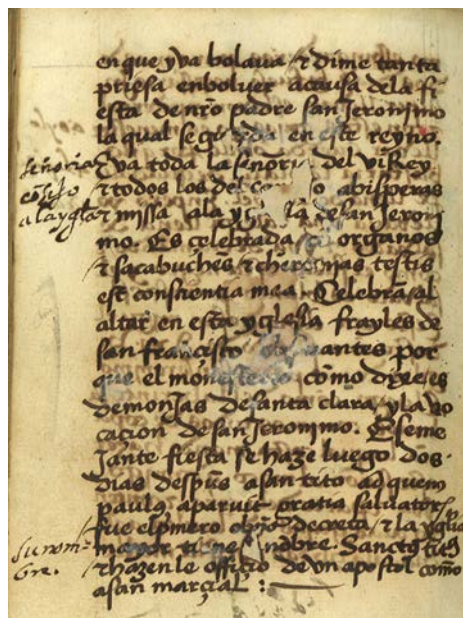 en que yva bolaua ⁊ dime tanta
priesa en bolver a causa de la fi
esta de nr̃o padre san Jeronimo
la qual se guarda en este reyno.
E va toda la señoria del viRey
⁊ todos los del o a bisperas
⁊ missa a la de san Jeroni
mo. Es celebrada organos
⁊ sacabuches ⁊ cheremias testis
est conscientia mea. Celebrã al
altar en esta yglesia frayles de
san francisco obseruantes por
que el monesterio como dixe es
de monJas de santa clara y la vo
cacion de san Jeronimo. E seme
Jante fiesta se haze luego dos
dias despũs a san tito ad quem
paulus aparuit gratia saluatoris
fue el pͥmero obpõ de creta ⁊ la yglia
mayor tiene nõbre. Sanctus titus
⁊ hazen le officio de vn apostol como
a san marçial :
señoria
cõsejo
a la yglia
su nom
bre.